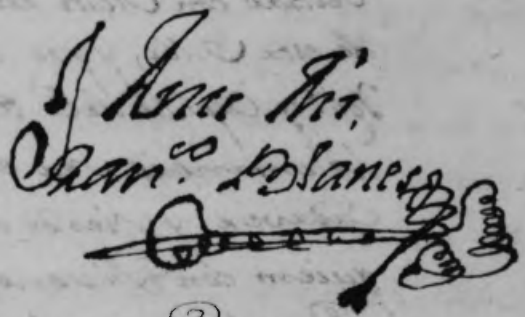 Ante Mi,
Fran.co Blanes